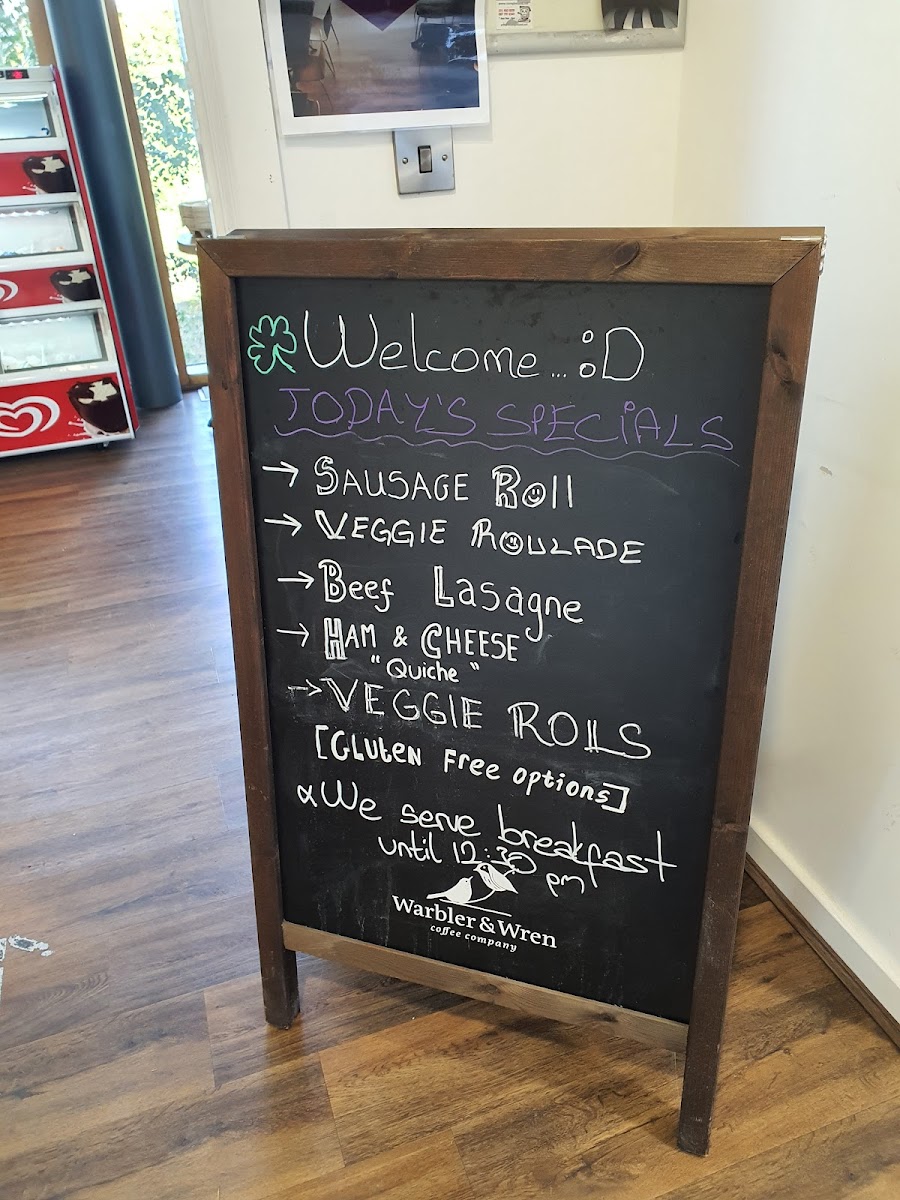 Welcome... :D
TODAY'S SPECiALS
→ SAUSAGE Roll
→ VEGGIE ROULADE
→ Beef Lasagne
→ HAM & CHEESE
"Quiche"
→ VEGGIE ROllS
[GLUteN Free options]
We serve breakfast
until 12:30
pm
Warbler & Wren
coffee company